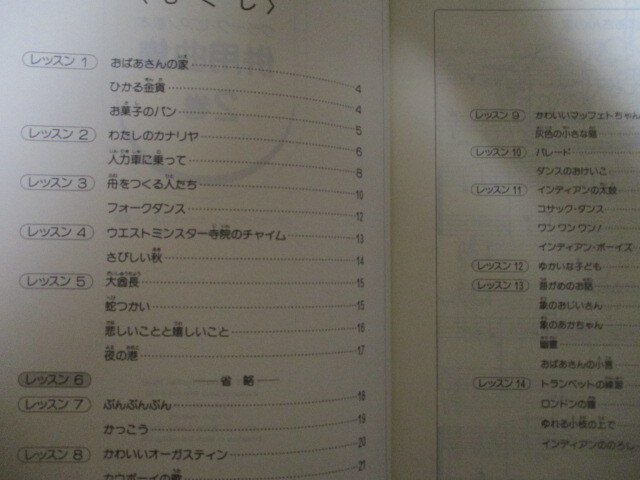 レッスン 1 おばあさんの家 4
ひかる金貨 4
お菓子のパン 5
レッスン 2 わたしのカナリヤ 6
人力車に乗って 8
レッスン 3 舟をつくる人たち 10
フォークダンス 12
レッスン 4 ウエストミンスター寺院のチャイム 13
さびしい秋 14
レッスン 5 大酋長 15
蛇つかい 15
悲しいことと嬉しいこと 16
夜の港 17
レッスン 6 省略
レッスン 7 ぶんぶんぶん 18
かっこう 19
レッスン 8 かわいいオーガスティン 20
カウボーイの歌 21
レッスン 9 かわいいマッフェトちゃん
灰色の小さな猫
レッスン 10 パレード
ダンスのおけいこ
レッスン 11 インディアンの太鼓
コサック・ダンス
ワン ワン ワン!
インディアン・ボーイズ
レッスン 12 ゆかいな子ども
レッスン 13 昔がめのお話
象のおじいさん
象のあかちゃん
おばあさんの小言
レッスン 14 トランペットの練習
ロンドンの鐘
ゆれる小枝の上で
インディアンののろし